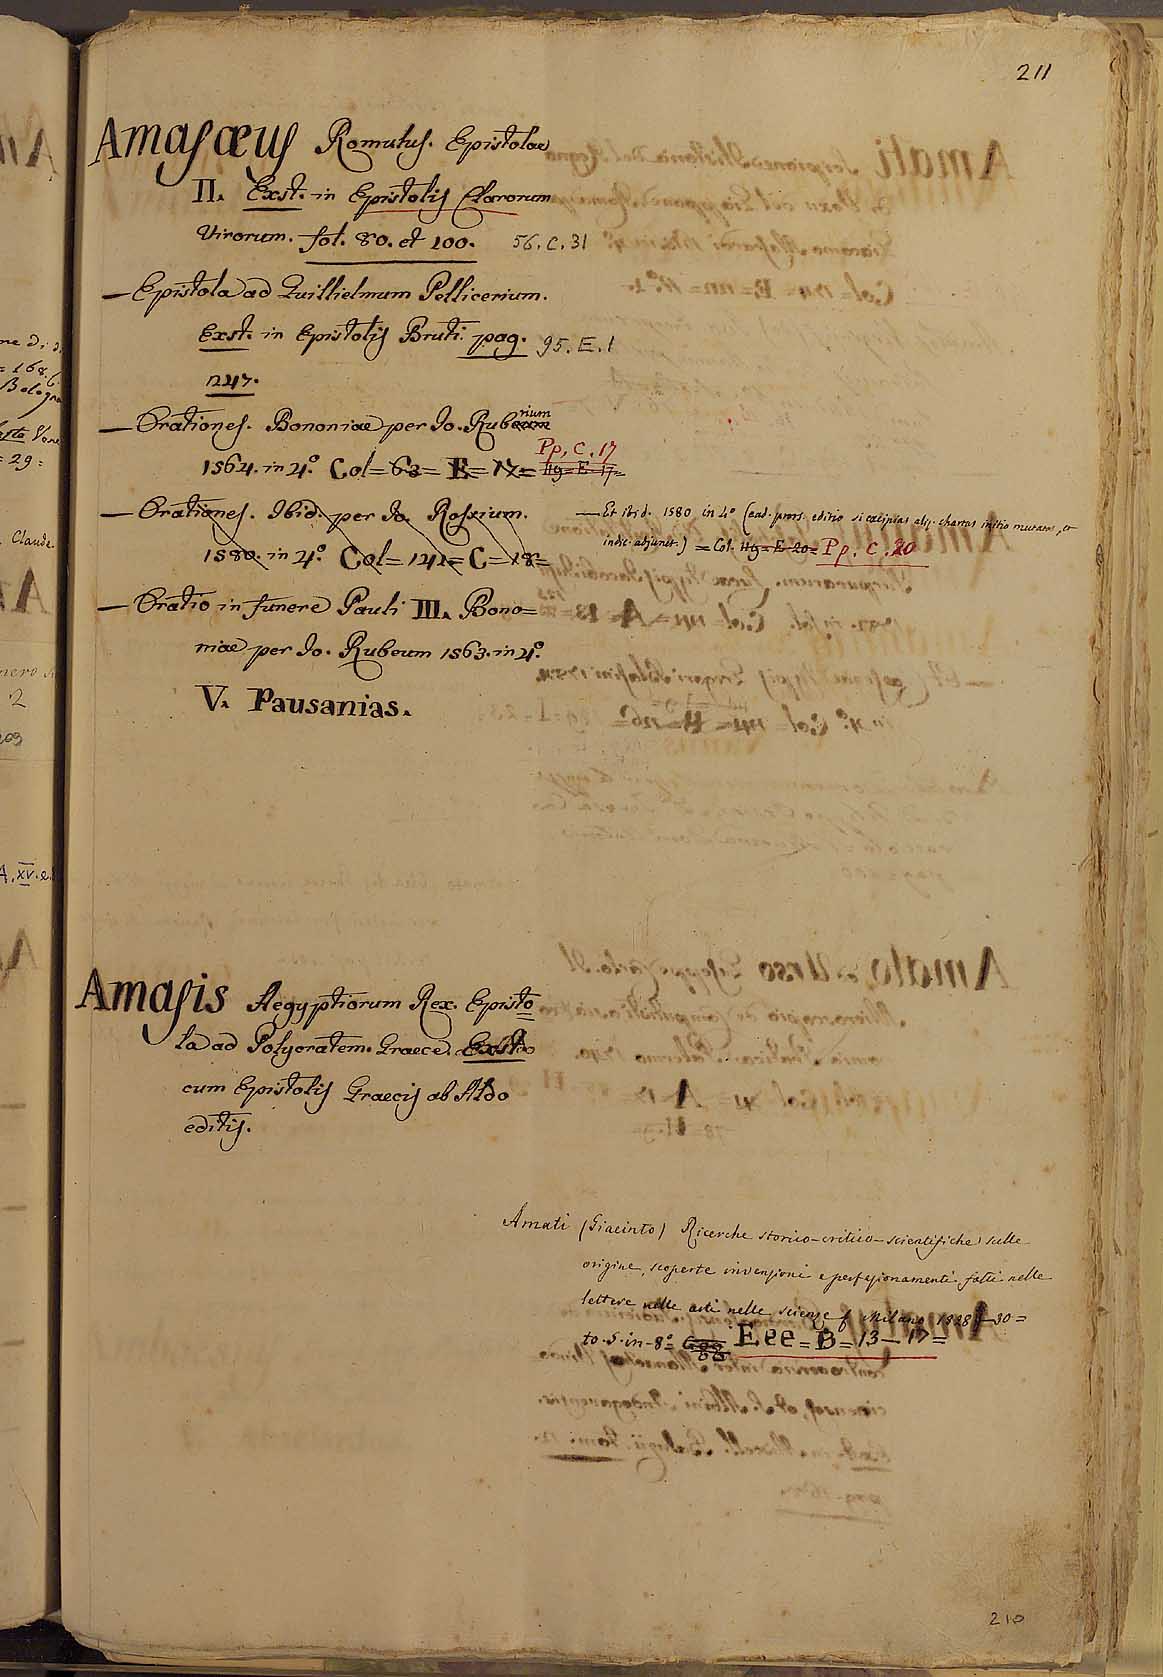 211
Amasæus Romulus. Epistolae
II. Exst. in Epistolis Clarorum
Virorum. fol. 80. et 100. 56. C. 31
— Epistola ad Guillielmum Pellicerium.
Exst. in Epistolis Bruti pag. 95. E. 1
1247.
— Orationes. Bononiae per Jo. Ruberium
Pp. C. 17
1564. in 4.º Col= 63= E= 17= Hg= E 17=
— Orationes. Ibid. per Jo. Rossium.
1580. in 4.º Col= 141= C= 18=
— Et ibid. 1580 in 4º (ead. prors. editio si excipias aliq. chartas initio mutatas, et
indic. adjunct.) = Col. Hg= E 20= Pp. C. 20
— Oratio in funere Pauli III. Bono=
niae per Jo. Rubeum 1563. in 4.º
V. Pausanias.
Amasis Aegyptiorum Rex. Episto
la ad Polycratem. Graece. Exst
cum Epistolis Graecis ab Aldo
editis.
Amati (Giacinto) Ricerche storico-critico-scientifiche sulle
origine, scoperte invenzioni e perfezionamenti fatti nelle
lettere nelle arti nelle scienze Milano 1828-30=
to. 5. in-8º Eee= B= 13-17=
210
2
Claude
Bologna
= 29=